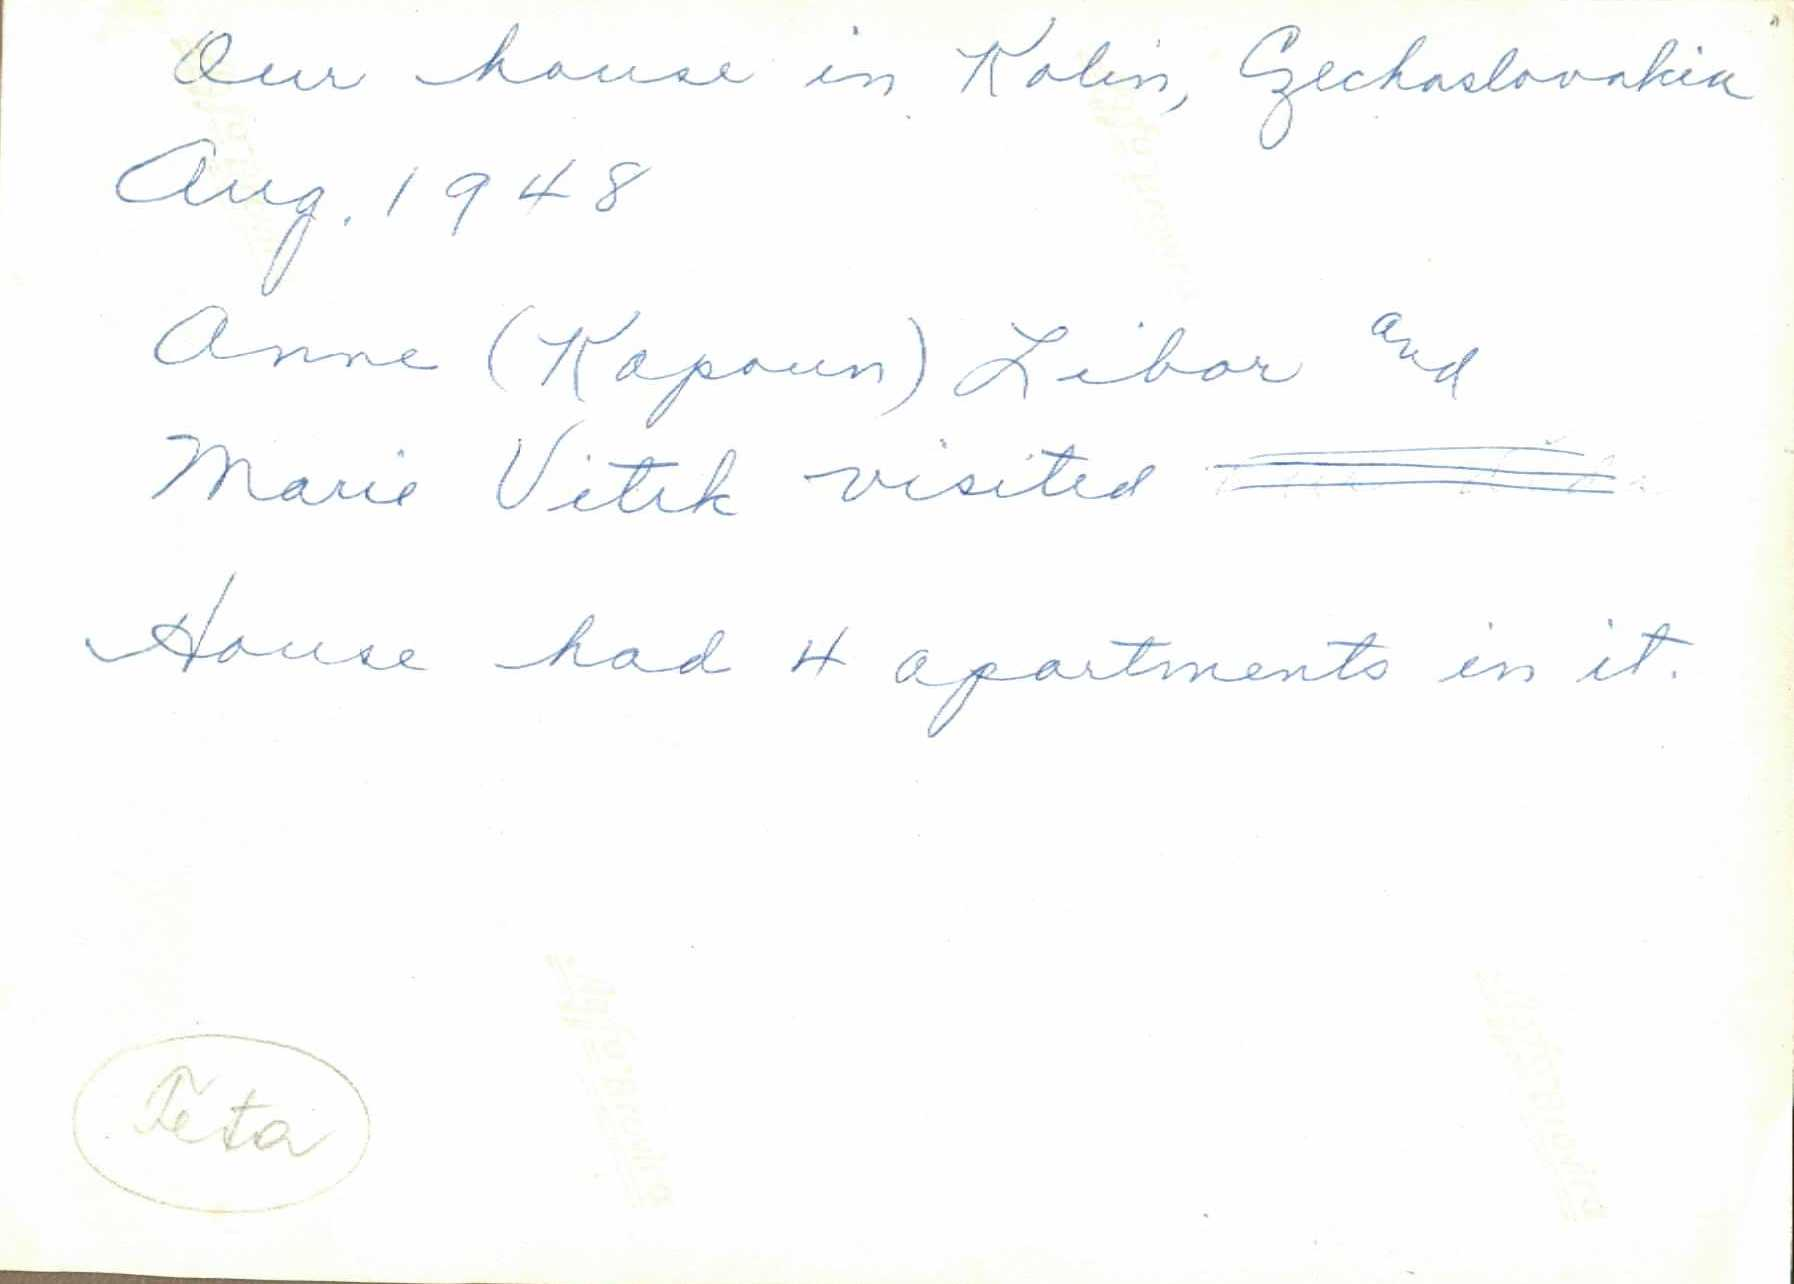 Our house in Kolin, Czechoslovakia
Aug. 1948
Anne (Kapoun) Libor and
Marie Vitek visited
House had 4 apartments in it.
Teta